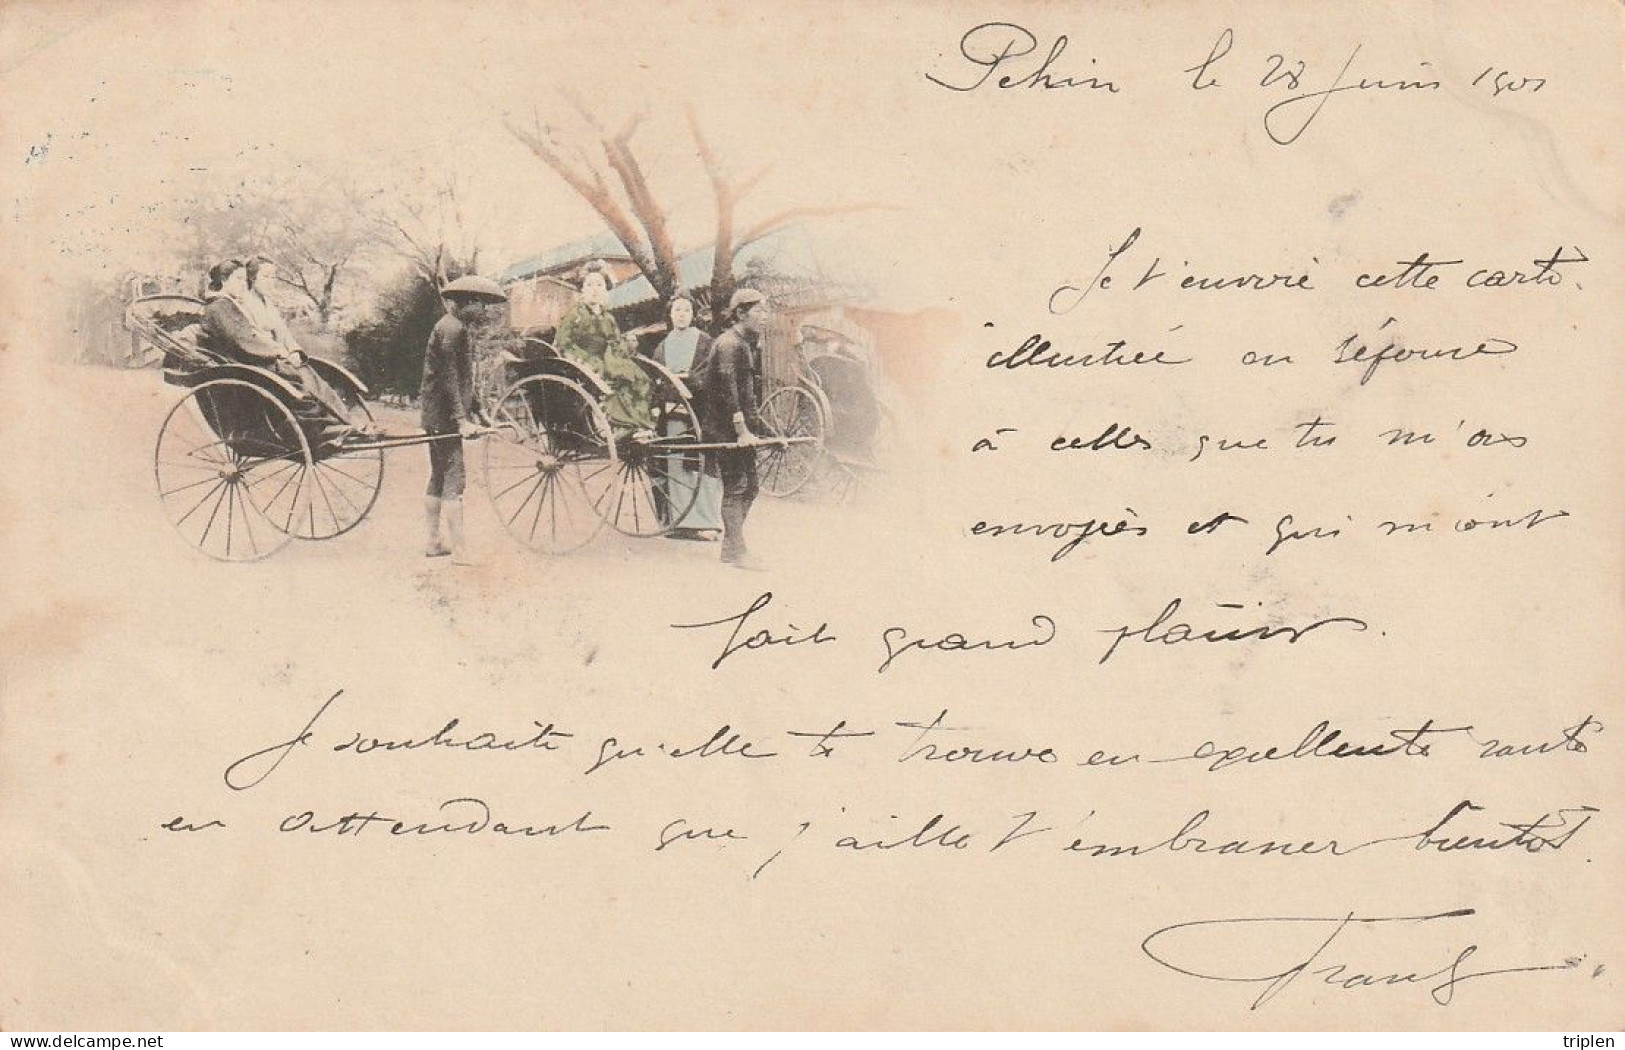 Pékin le 28 Juin 1901
Je t'envoie cette carte
illustrée en réponse
à celles que tu m'as
envoyées et qui m'ont
fait grand plaisir.
Je souhaite qu'elle te trouve en excellente santé
en attendant que j'aille t'embrasser bientôt.
Frantz
www.delcampe.net
triplen